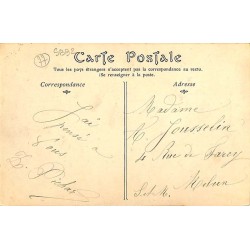 77
Carte Postale
Tous les pays étrangers n'acceptent pas la correspondance au verso.
(Se renseigner à la poste.)
Correspondance
Adresse
J'ai
pensé à
Vous
Madame
Jousselin
4 Rue de
S.et M.